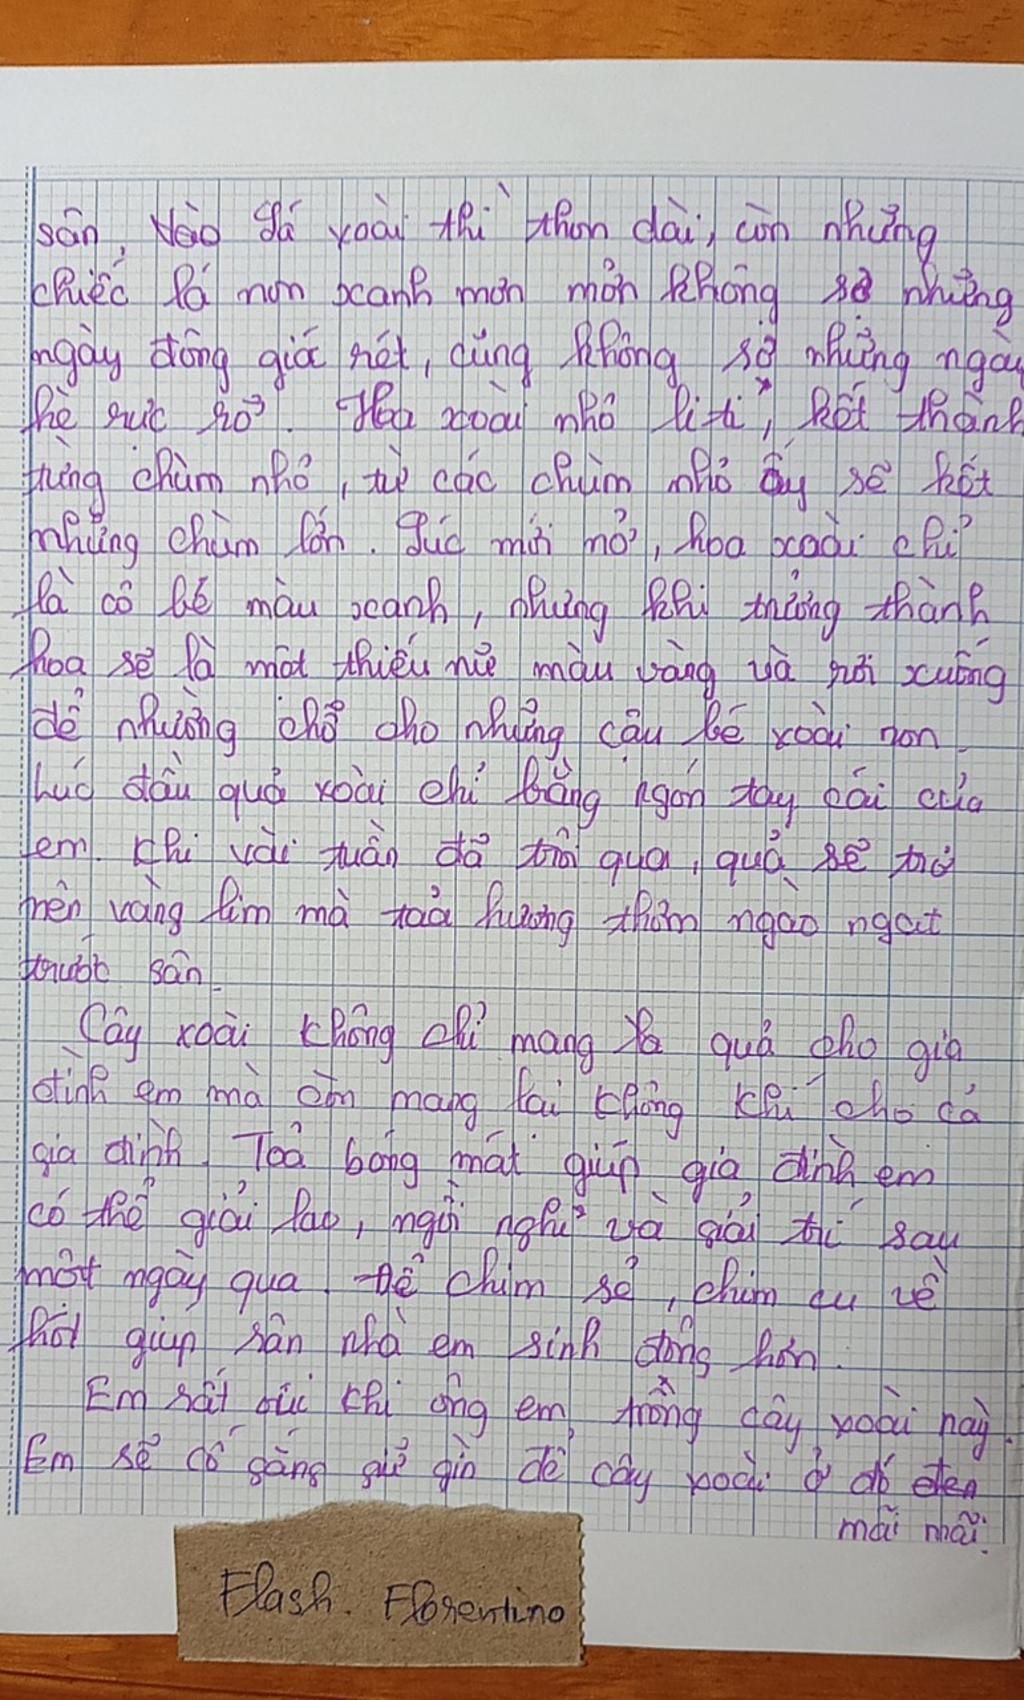 sân, Nào lá xoài thì thon dài, còn những
chiếc lá non xanh mơn mởn không sợ những
ngày đông giá rét, cũng không sợ những ngày
hè rực rỡ. Hoa xoài nhỏ li ti, kết thành
từng chùm nhỏ, từ các chùm nhỏ ấy sẽ kết
những chùm lớn. Lúc mới nở, hoa xoài chỉ
là cô bé màu xanh, nhưng khi trưởng thành
hoa sẽ là một thiếu nữ màu vàng và rơi xuống
để nhường chỗ cho những cậu bé xoài non.
Lúc đầu quả xoài chỉ bằng ngón tay cái của
em. Khi vài tuần đã trôi qua, quả sẽ trở
nên vàng lim mà toả hương thơm ngào ngạt
trước sân.
Cây xoài không chỉ mang quả cho gia
đình em mà còn mang lại không khí cho cả
gia đình. Toả bóng mát giúp gia đình em
có thể giải lao, ngồi nghỉ và giải trí sau
một ngày qua. Để chim sẻ, chim cu về
hót giúp sân nhà em sinh động hơn.
Em rất vui khi ông em trồng cây xoài này.
Em sẽ cố gắng giữ gìn để cây xoài ở đó đến
mãi mãi.
Flash. Florentino